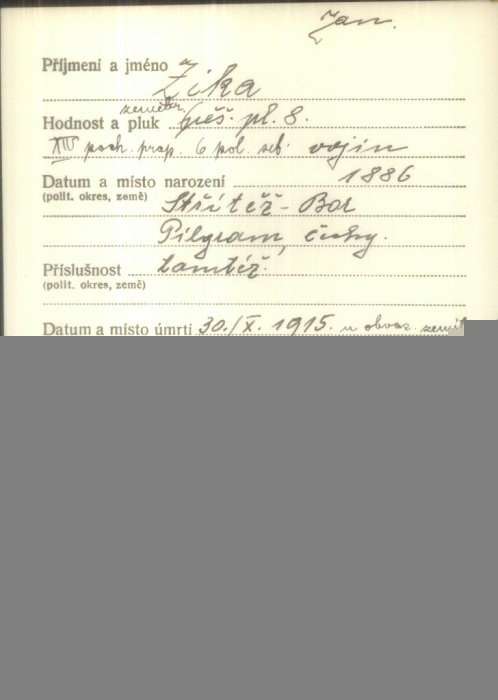 Jan.
Příjmení a jméno Zika
Hodnost a pluk zeměbr. pěš. pl. 8.
XIV poch. prap. 6 pol. set. vojín
Datum a místo narození 1886
(polit. okres, země) Střítěž - Bor
Pilgram, Čechy.
Příslušnost tamtéž.
(polit. okres, země)
Datum a místo úmrtí 30./X. 1915. u obvaz.